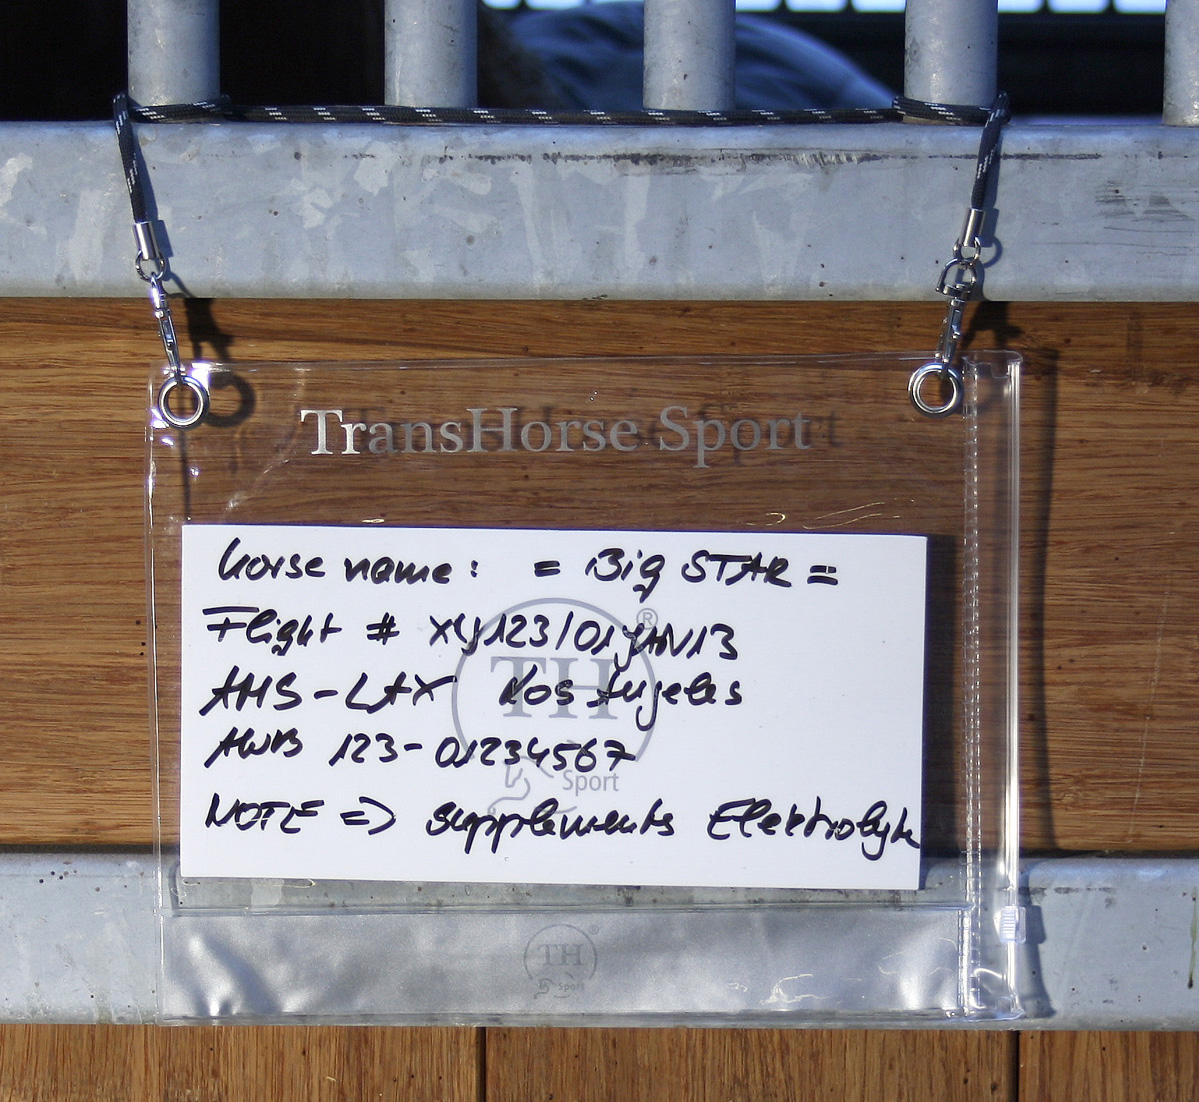 TransHorse Sport
horse name: = Big STAR =
Flight # XY123/01JAN13
AMS-LAX Los Angeles
AWB 123-01234567
NOTE => supplements Elektrolyte
®
TH
Sport
TH
Sport